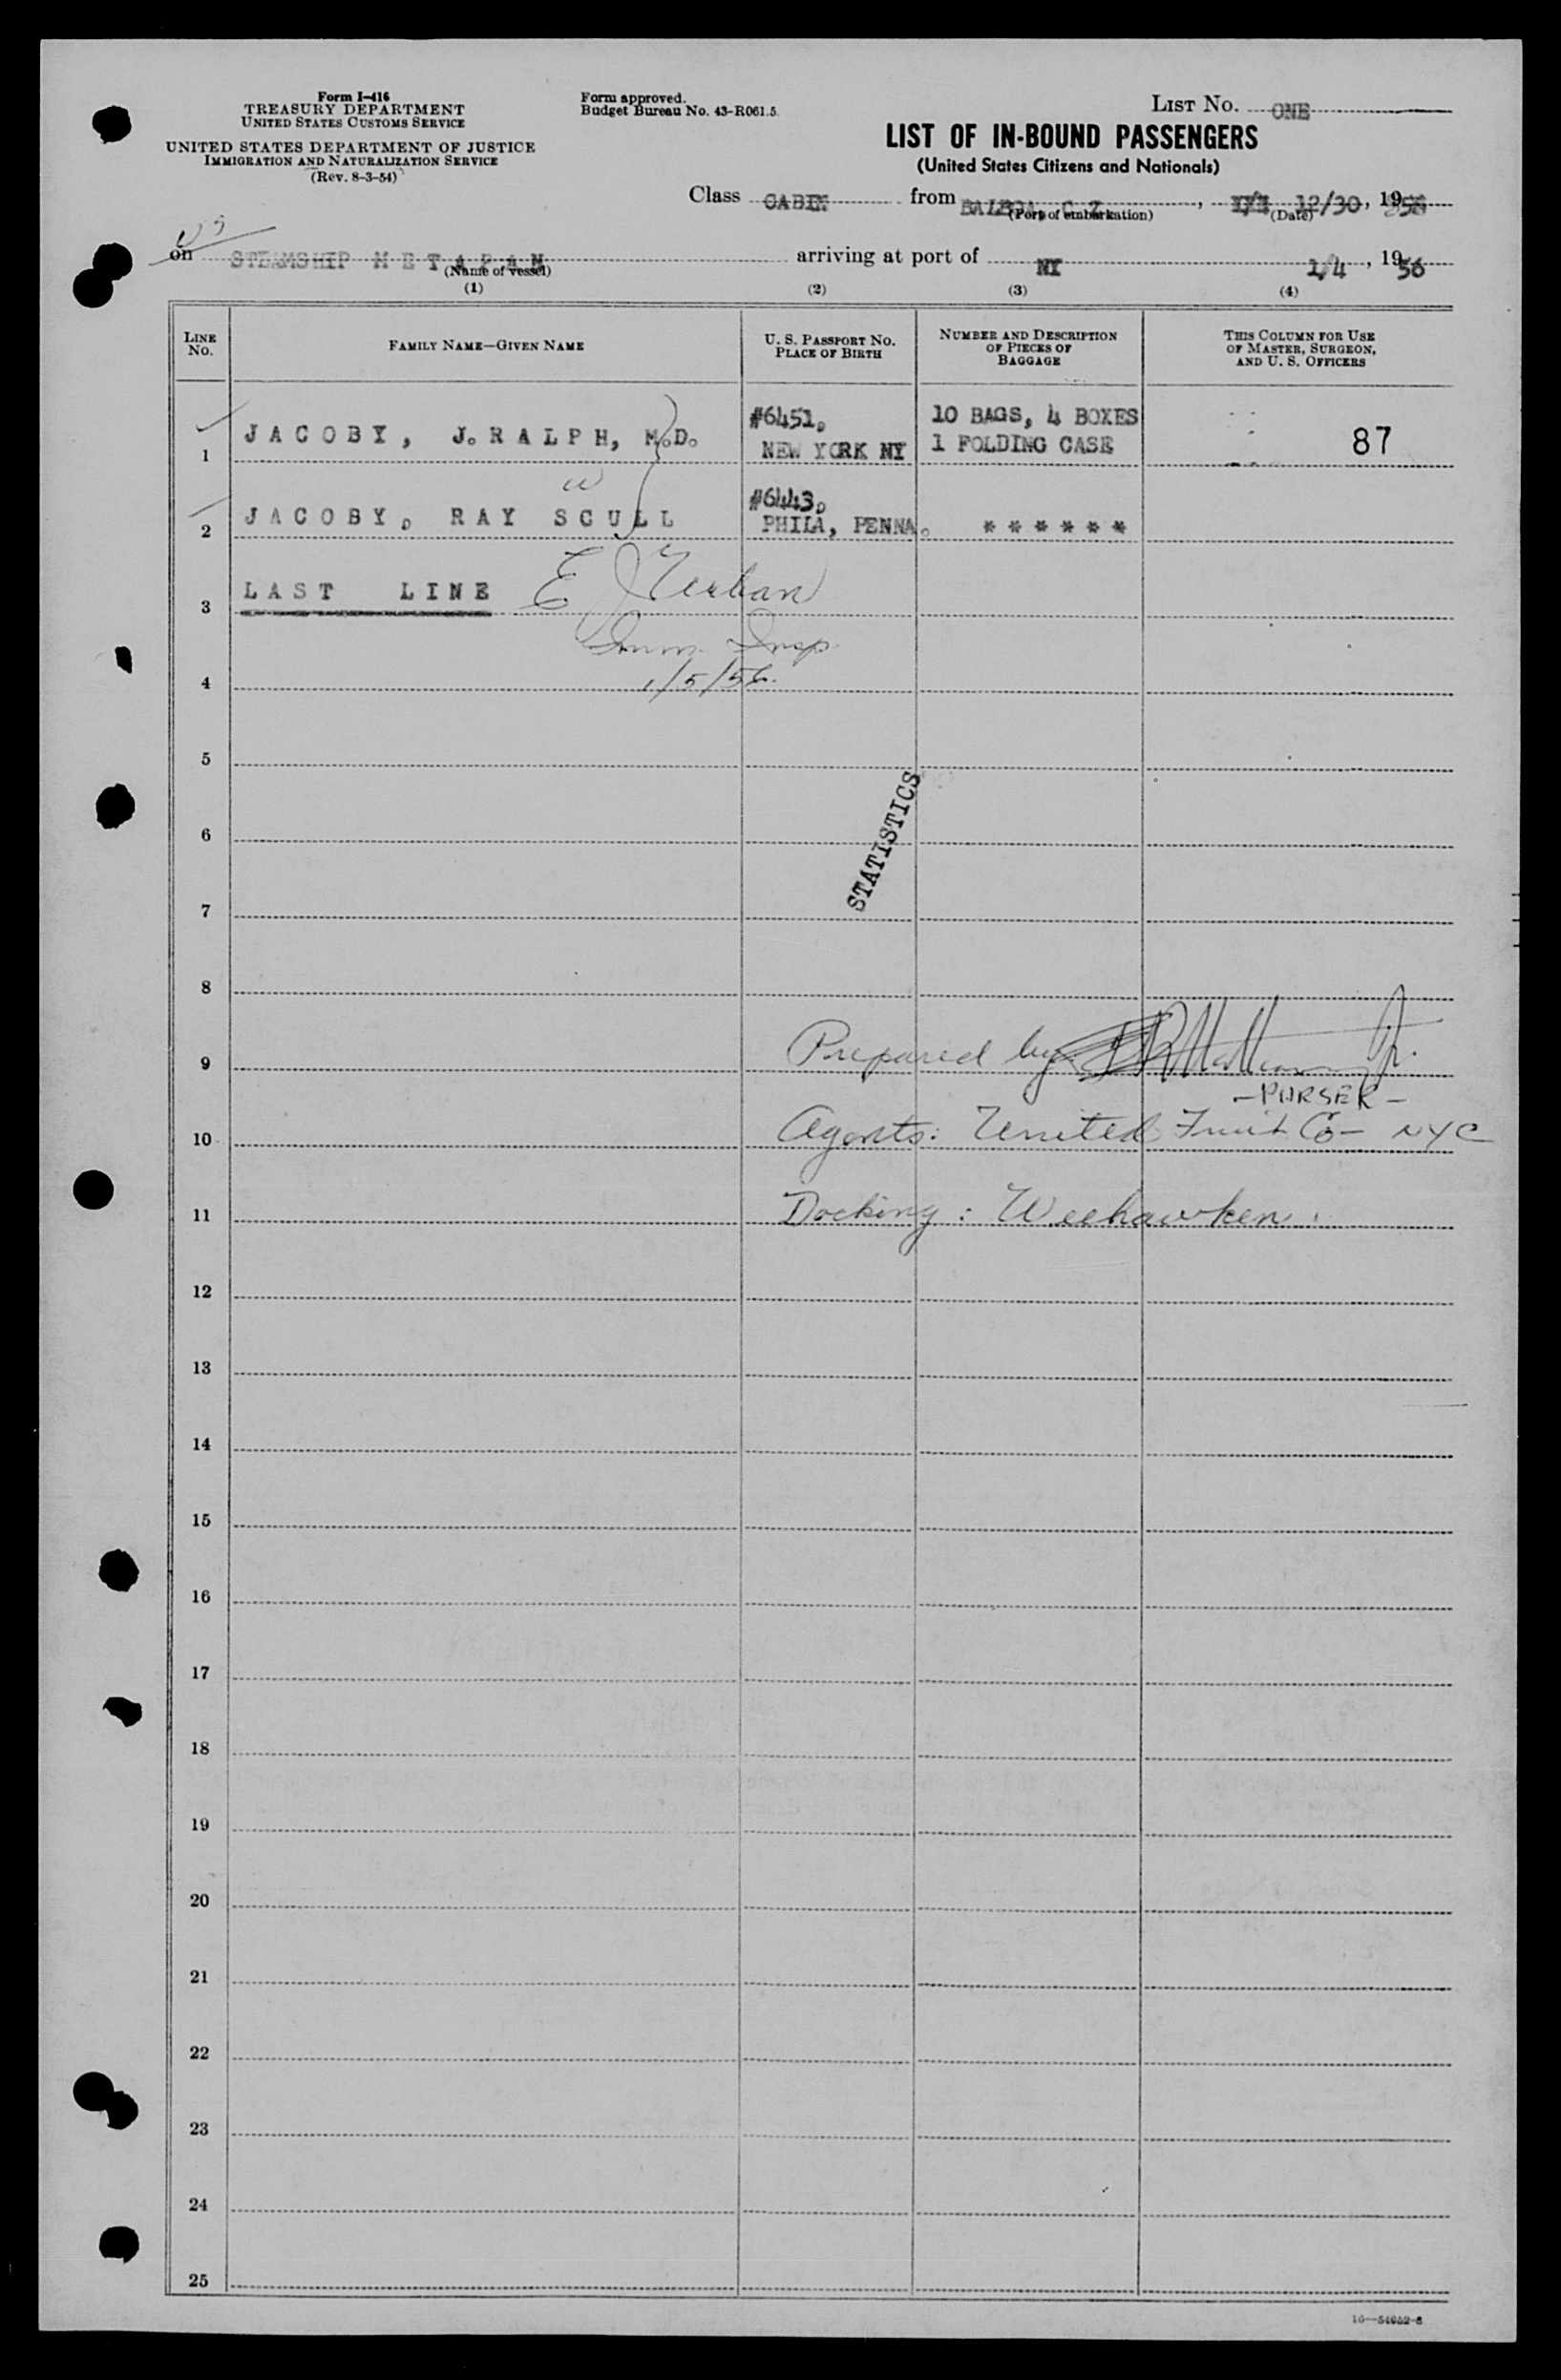 Form I-416
TREASURY DEPARTMENT
UNITED STATES CUSTOMS SERVICE
UNITED STATES DEPARTMENT OF JUSTICE
IMMIGRATION AND NATURALIZATION SERVICE
(Rev. 8-3-54)
Form approved.
Budget Bureau No. 43-R061.5
LIST No. ONE
LIST OF IN-BOUND PASSENGERS
(United States Citizens and Nationals)
Class CABIN from BALBOA, C Z, 12/30, 19
(Port of embarkation) (Date)
on STEAMSHIP M E T A P A N arriving at port of NY 1/4, 1956
(Name of vessel)
(1) (2) (3) (4)
LINE No. FAMILY NAME—GIVEN NAME U. S. PASSPORT No. PLACE OF BIRTH NUMBER AND DESCRIPTION OF PIECES OF BAGGAGE THIS COLUMN FOR USE OF MASTER, SURGEON, AND U. S. OFFICERS
1 JACOBY, J. RALPH, M.D. #6451, NEW YORK NY 10 BAGS, 4 BOXES 1 FOLDING CASE 87
2 JACOBY, RAY SCULL #6443, PHILA, PENNA. * * * * * *
3 LAST LINE E
Imm. Insp.
4 1/5/56.
5
STATISTICS
6
7
8
9 Prepared by Jr.
-PURSER-
10 Agents: United Fruit Co- NYC
11 Docking: Weehawken.
12
13
14
15
16
17
18
19
20
21
22
23
24
25